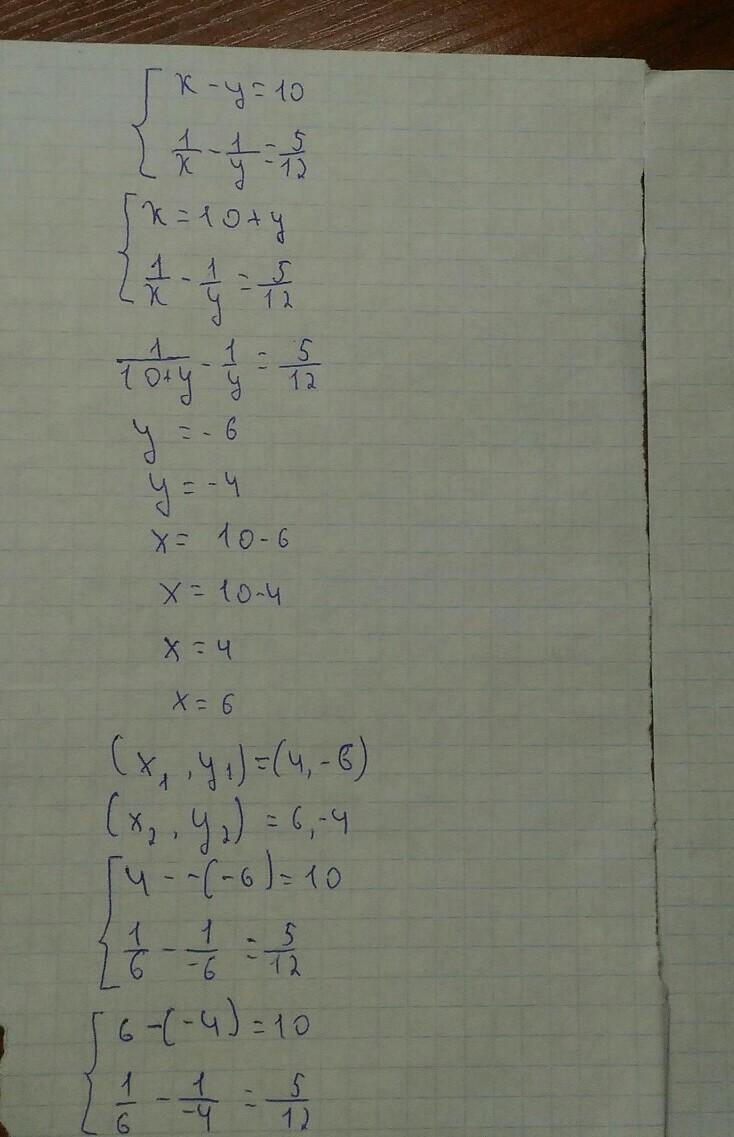 x - y = 10
1/x - 1/y = 5/12
x = 10 + y
1/x - 1/y = 5/12
1/10+y - 1/y = 5/12
y = - 6
y = -4
x = 10 - 6
x = 10 - 4
x = 4
x = 6
(x₁, y₁) = (4, -6)
(x₂, y₂) = 6, -4
4 - -(-6) = 10
1/6 - 1/-6 = 5/12
6 - (-4) = 10
1/6 - 1/-4 = 5/12